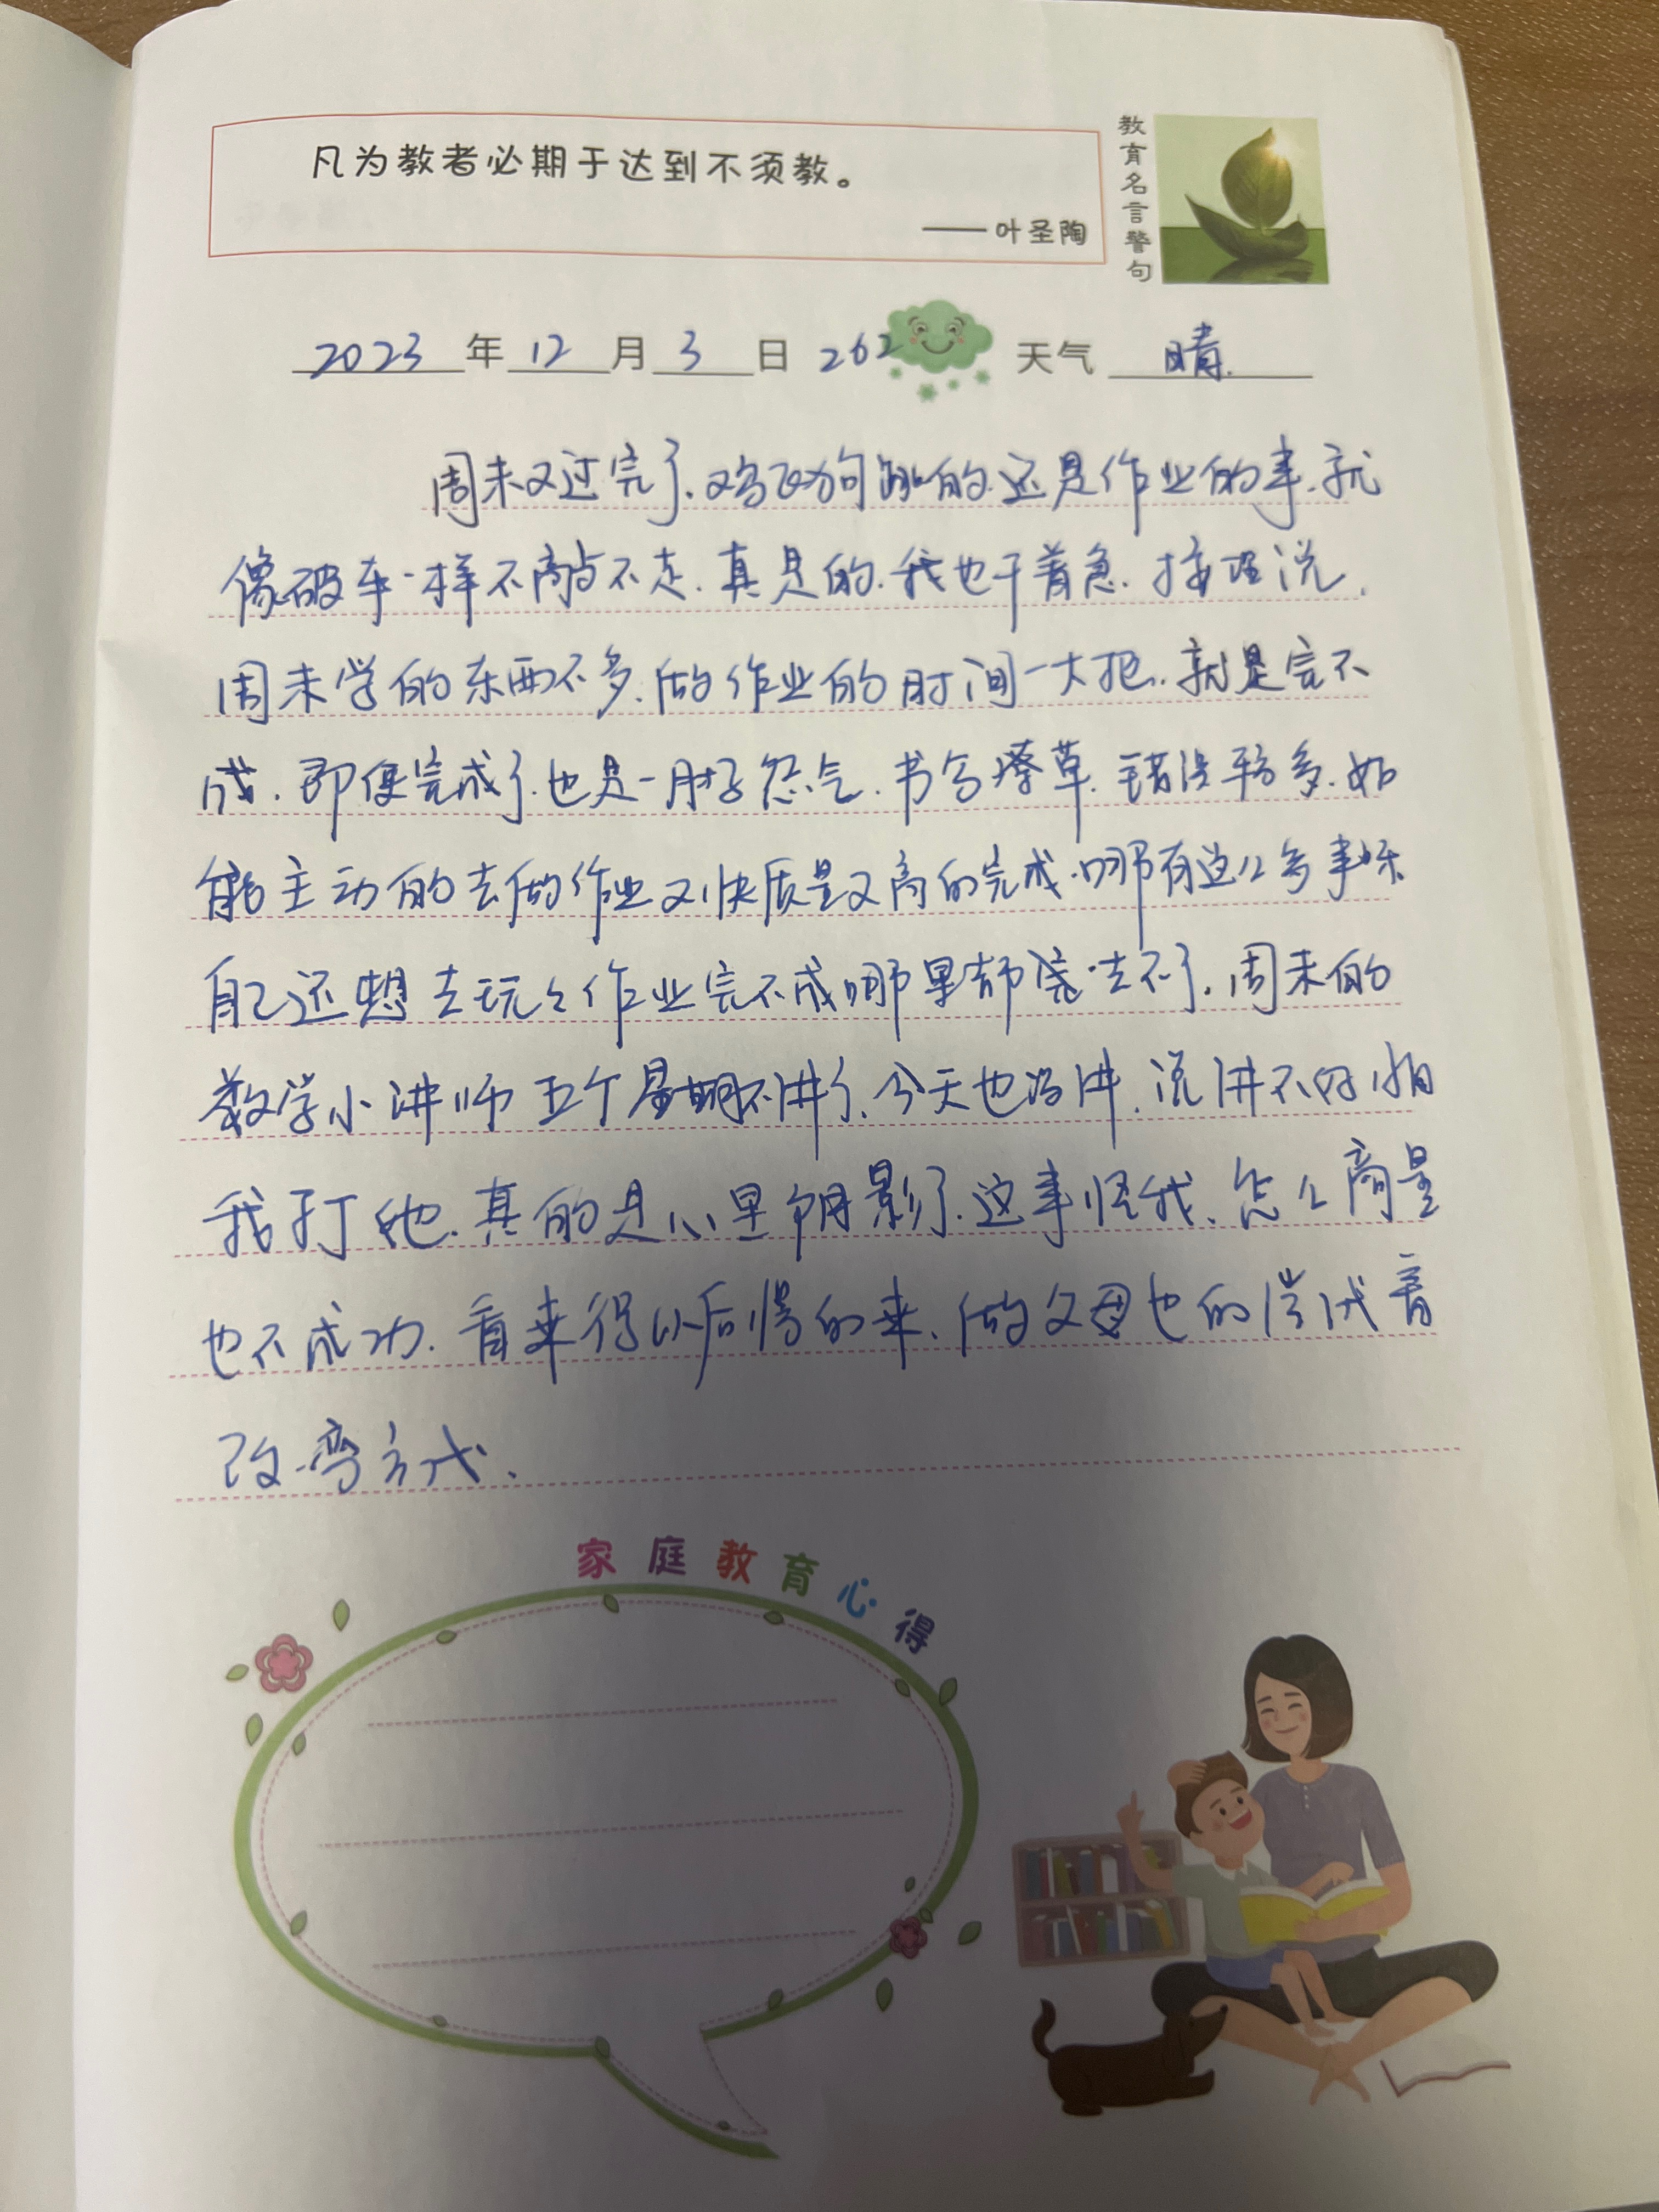 凡为教者必期于达到不须教。
——叶圣陶
教育名言警句
2023年12月3日 262 天气 晴.
周末又过完了.鸡飞狗跳的.还是作业的事.就
像破车一样不敲不走.真是的.我也干着急.按理说.
周末学的东西不多.做作业的时间一大把.就是完不
成.即便完成了.也是一肚子怨气.书写潦草.错误较多.如
能主动的去做作业又快质量又高的完成.哪有这么多事呀
自己还想去玩々作业完不成哪里都 去不了.周末的
数学小讲师五个星期不讲了.今天也没讲.说讲不好怕
我打他.真的是心里有阴影了.这事怪我.怎么商量
也不成功.看来得以后慢的来.做父母也的尝试着
改变方式.
家庭教育心得